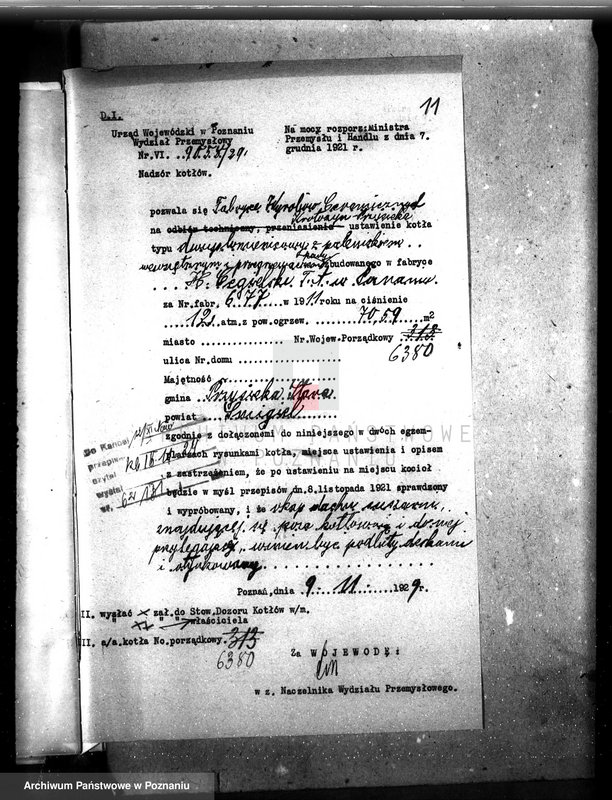 11
D.I.
Urząd Wojewódzki w Poznaniu
Wydział Przemysłowy
Nr.VI. 9855/29.
Nadzór kotłów.
Na mocy rozporz:Ministra
Przemysłu i Handlu z dnia 7.
grudnia 1921 r.
pozwala się Fabryce Wyrobów Ceramicznych
na odbiór techniczny, przeniesienie ustawienie kotła
typu z paleniskiem
wewnętrznym i zbudowanego w fabryce
H. Cegielski T.A. w Poznaniu
za Nr.fabr. 677 w 1911 roku na ciśnienie
12 atm.z pow.ogrzew. 70,59 m2
miasto Nr.Wojew.Porządkowy 313
6380
ulica Nr.domu
Majętność
gmina Przysieka Stara
powiat Śmigiel
zgodnie z dołączonemi do niniejszego w dwóch egzem-
plarzach rysunkami kotła, miejsca ustawienia i opisem
z zastrzeżeniem, że po ustawieniu na miejscu kocioł
będzie w myśl przepisów dn.8.listopada 1921 sprawdzony
i wypróbowany, i że okap dachu
znajdującej się poza kotłownią i do niej
przylegającej, winien być podbity deskami
i otynkowany
Do Kancel
przepis
czytał
wysłał
Poznań,dnia 9. 11. 1929r.
II. wysłać x zał.do Stow.Dozoru Kotłów w/m.
" " " właściciela
III. a/a.kotła No.porządkowy. 313
6380
Za WOJEWODĘ:
w z. Naczelnika Wydziału Przemysłowego.
ARCHIWUM PAŃSTWOWE
W POZNANIU
Archiwum Państwowe w Poznaniu